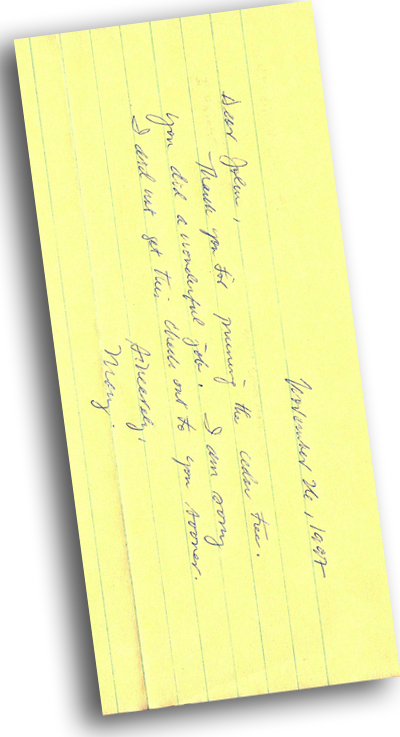 November 26, 1997
Dear John,
Thank you for pruning the cedar tree.
you did a wonderful job. I am sorry
I did not get this check out to you sooner.
Sincerely,
Mary.